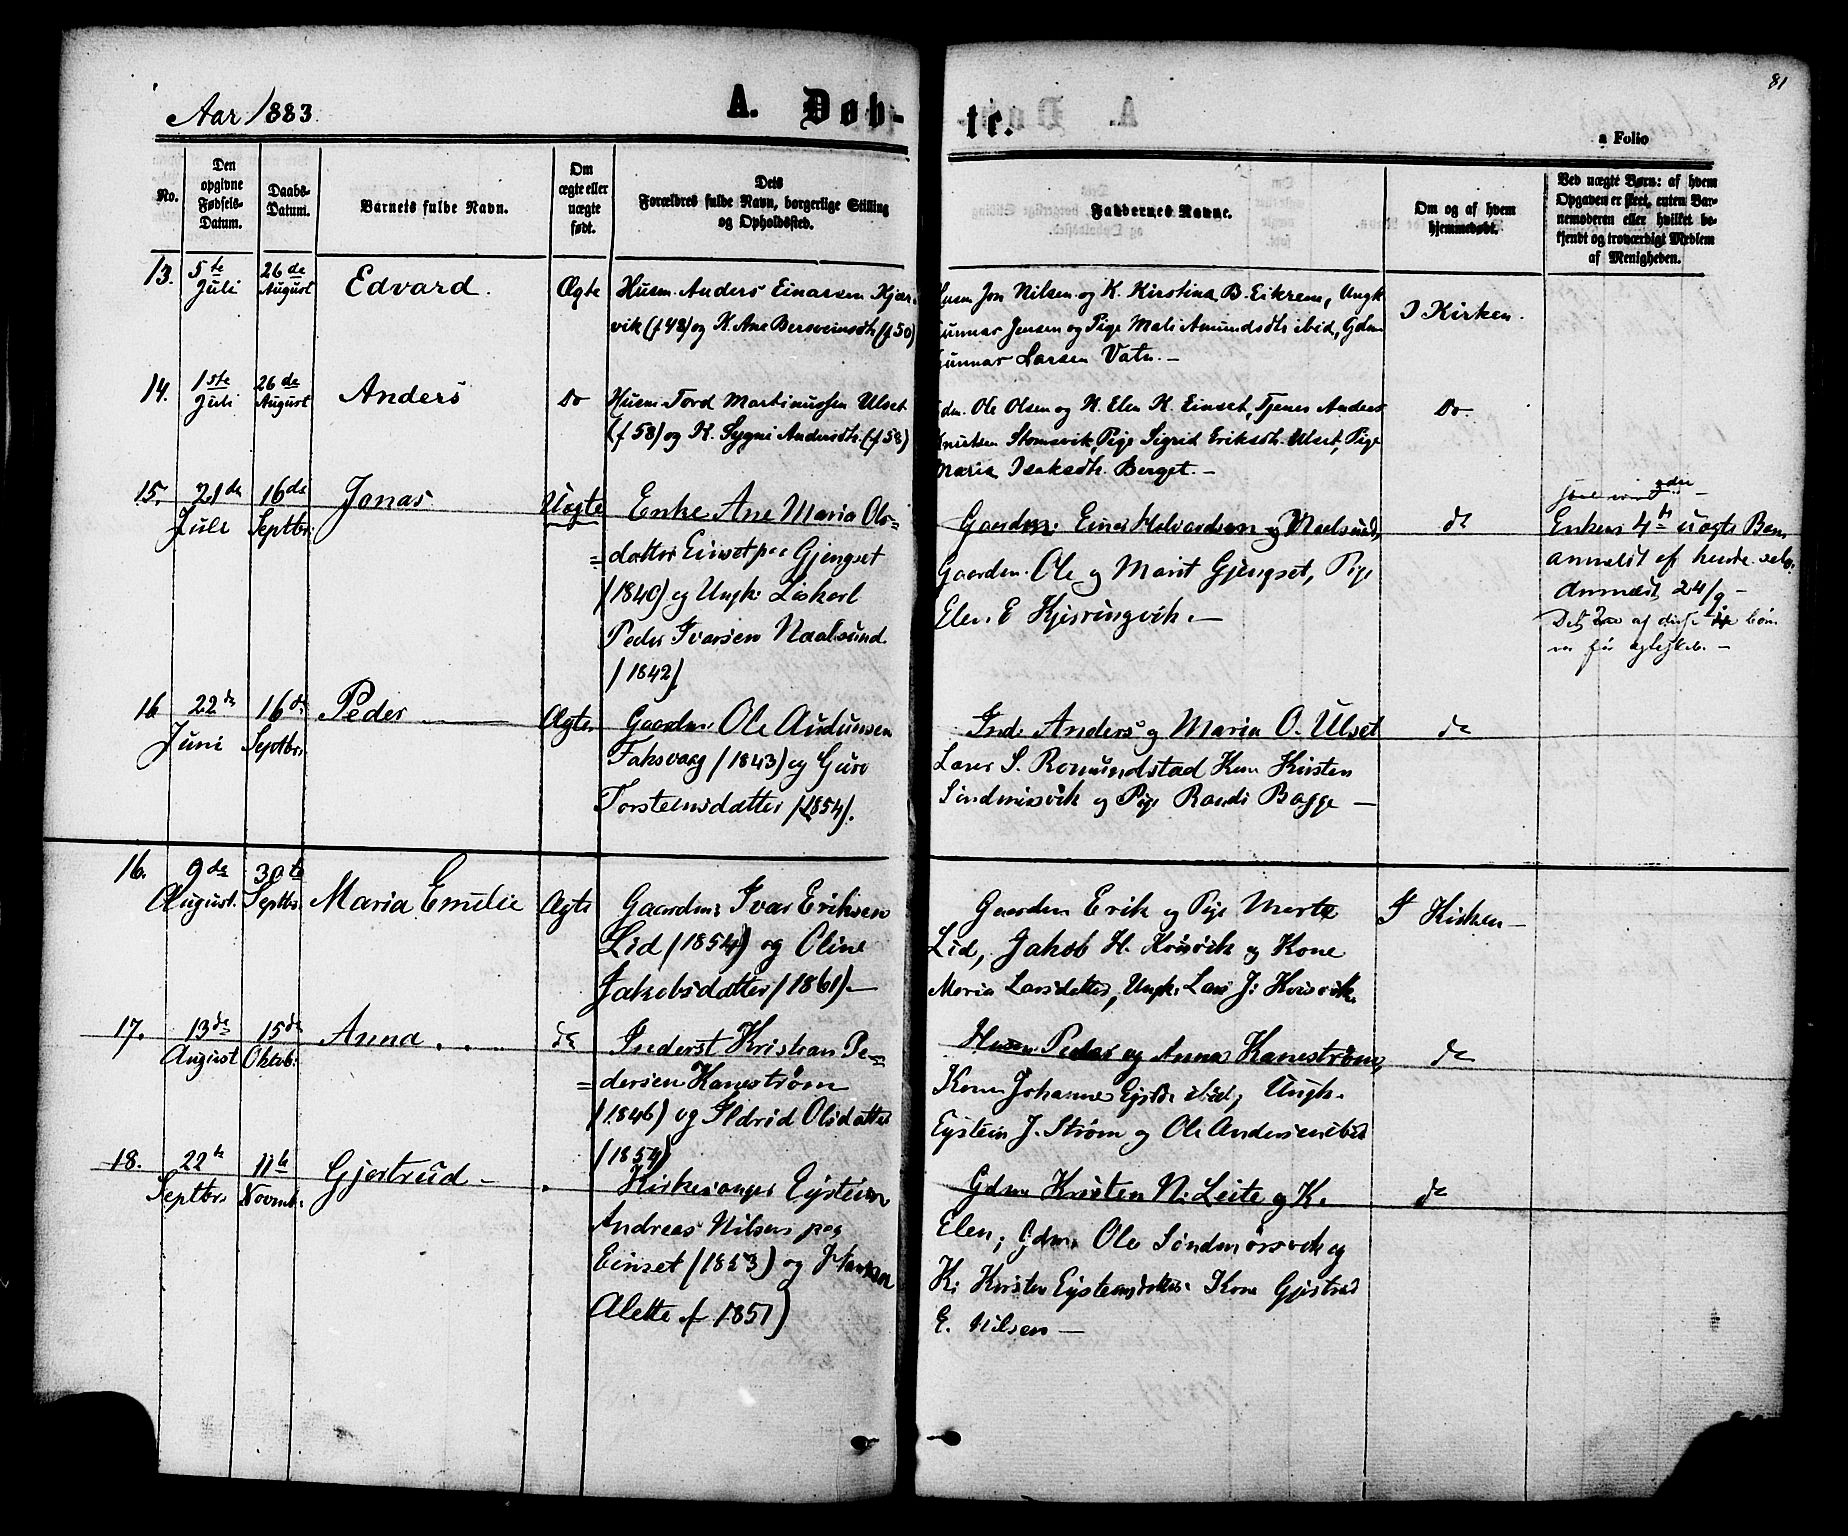 81
Aar 1883.
A. Døb-
te.
a Folio
No.
Den
opgivne
Fødsels-
Datum.
Daabs-
Datum.
Barnets fulde Navn.
Om
ægte eller
uægte
født.
Dets
Forældres fulde Navn, borgerlige Stilling
og Opholdssted.
Faddernes Navne.
Om og af hvem
hjemmedøbt.
Ved uægte Børn: af hvem
Opgaven er skeet, enten Bar-
nemoderen eller hvilket be-
kjendt og troværdigt Medlem
af Menigheden.
13.
5te
Juli
26de
August
Edvard.
Ægte
Husm. Anders Einarsen Kjør-
vik (f 48) og K. Ane Bersveinsdtr. (f 50)
Husm Jon Nilsen og K. Kirstina B. Eikrem, Ungk
Gunnar Jensen og Pige Mali Amundsdtr ibid, Gdm
Gunnar Larsen Vatn. —
I Kirken.
14.
1ste
Juli
26de
August
Anders
Do
Husm. Tord Martinussen Ulset
(f 58) og K. Sygni Andersdtr. (f 58)
Gdm. Ole Olsen og K. Elen K. Einset, Tjener Anders
Knutsen Stomsvik, Pige Sigrid Eriksdtr. Ulset, Pige
Maria Isaksdtr. Berget. —
Do
15.
21de
Juli
16de
Septbr.
Jonas
Uægte
Enke Ane Maria Ols-
=datter Einset paa Gjengset
(1840) og Ungk.
Peder Ivarsen Naalsund
(1842)
Gaardm. Einar Halvardsen Naalsund,
Gaardm. Ole og Marit Gjengset, Pige
Elen E Kjøringvik. —
do
Enkens 4de uægte Barn
anmeldt af hende selv.
Anmeldt 24/9 —
16
22de
Juni
16de
Septbr.
Peder
Ægte
Gaardm. Ole Audunsen
Foksvaag (1843) og Guro
Torsteinsdatter (1854).
Ind. Anders og Maria O. Ulset
Lars S. Romundstad Kone Kirsten
Søndmørsvik og Pige Randi Bagge —
do
16.
9de
August.
30te
Septbr.
Maria Emelie
Ægte
Gaardm. Ivar Eriksen
Lid (1854) og Oline
Jakobsdatter (1861) —
Gaardm Erik og Pige Marte
Lid, Jakob H. Kvisvik og Kone
Maria Larsdatter, Ungk. Lars J. Kvisvik.
I Kirken —
17.
13de
August
15de
Oktob.
Anna
do
Inderst Kristian Pe-
=dersen Kanestrøm
(1846) og Ildrid Olsdatter
(1854)
Husm Peder og Anna Kanestrøm,
Kone Johanne Eystd. ibid, Ungk.
Eystein J. Strøm og Ole Andersen ibid
do
18.
22de
Septbr.
11te
Novmb.
Gjertrud —
Kirkesanger Eystein
Andreas Nilsen paa
Einset (1853) og Hanna
Alette f. 1851)
Gdm Kristen N. Leite og K.
Elen, Gdm. Ole Søndmørsvik og
K. Kirsten Eysteinsdatter Kone Gjertrud
E. Nilsen —
do